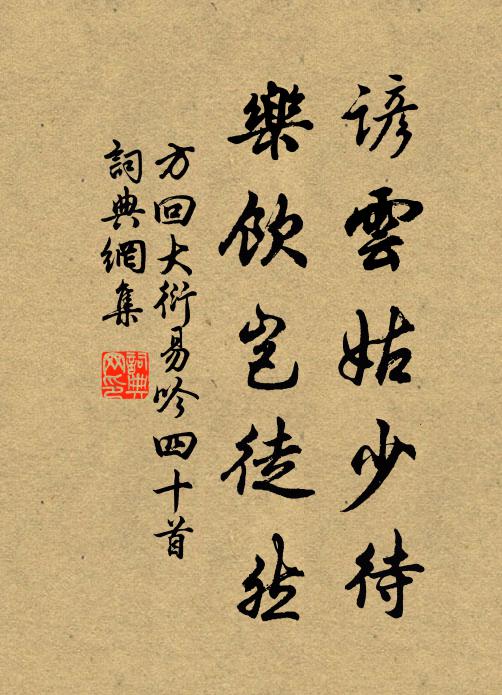 諺雲姑少待
樂飲豈徒然
方回大衍易吟四十首
詞典網集
詞典网印